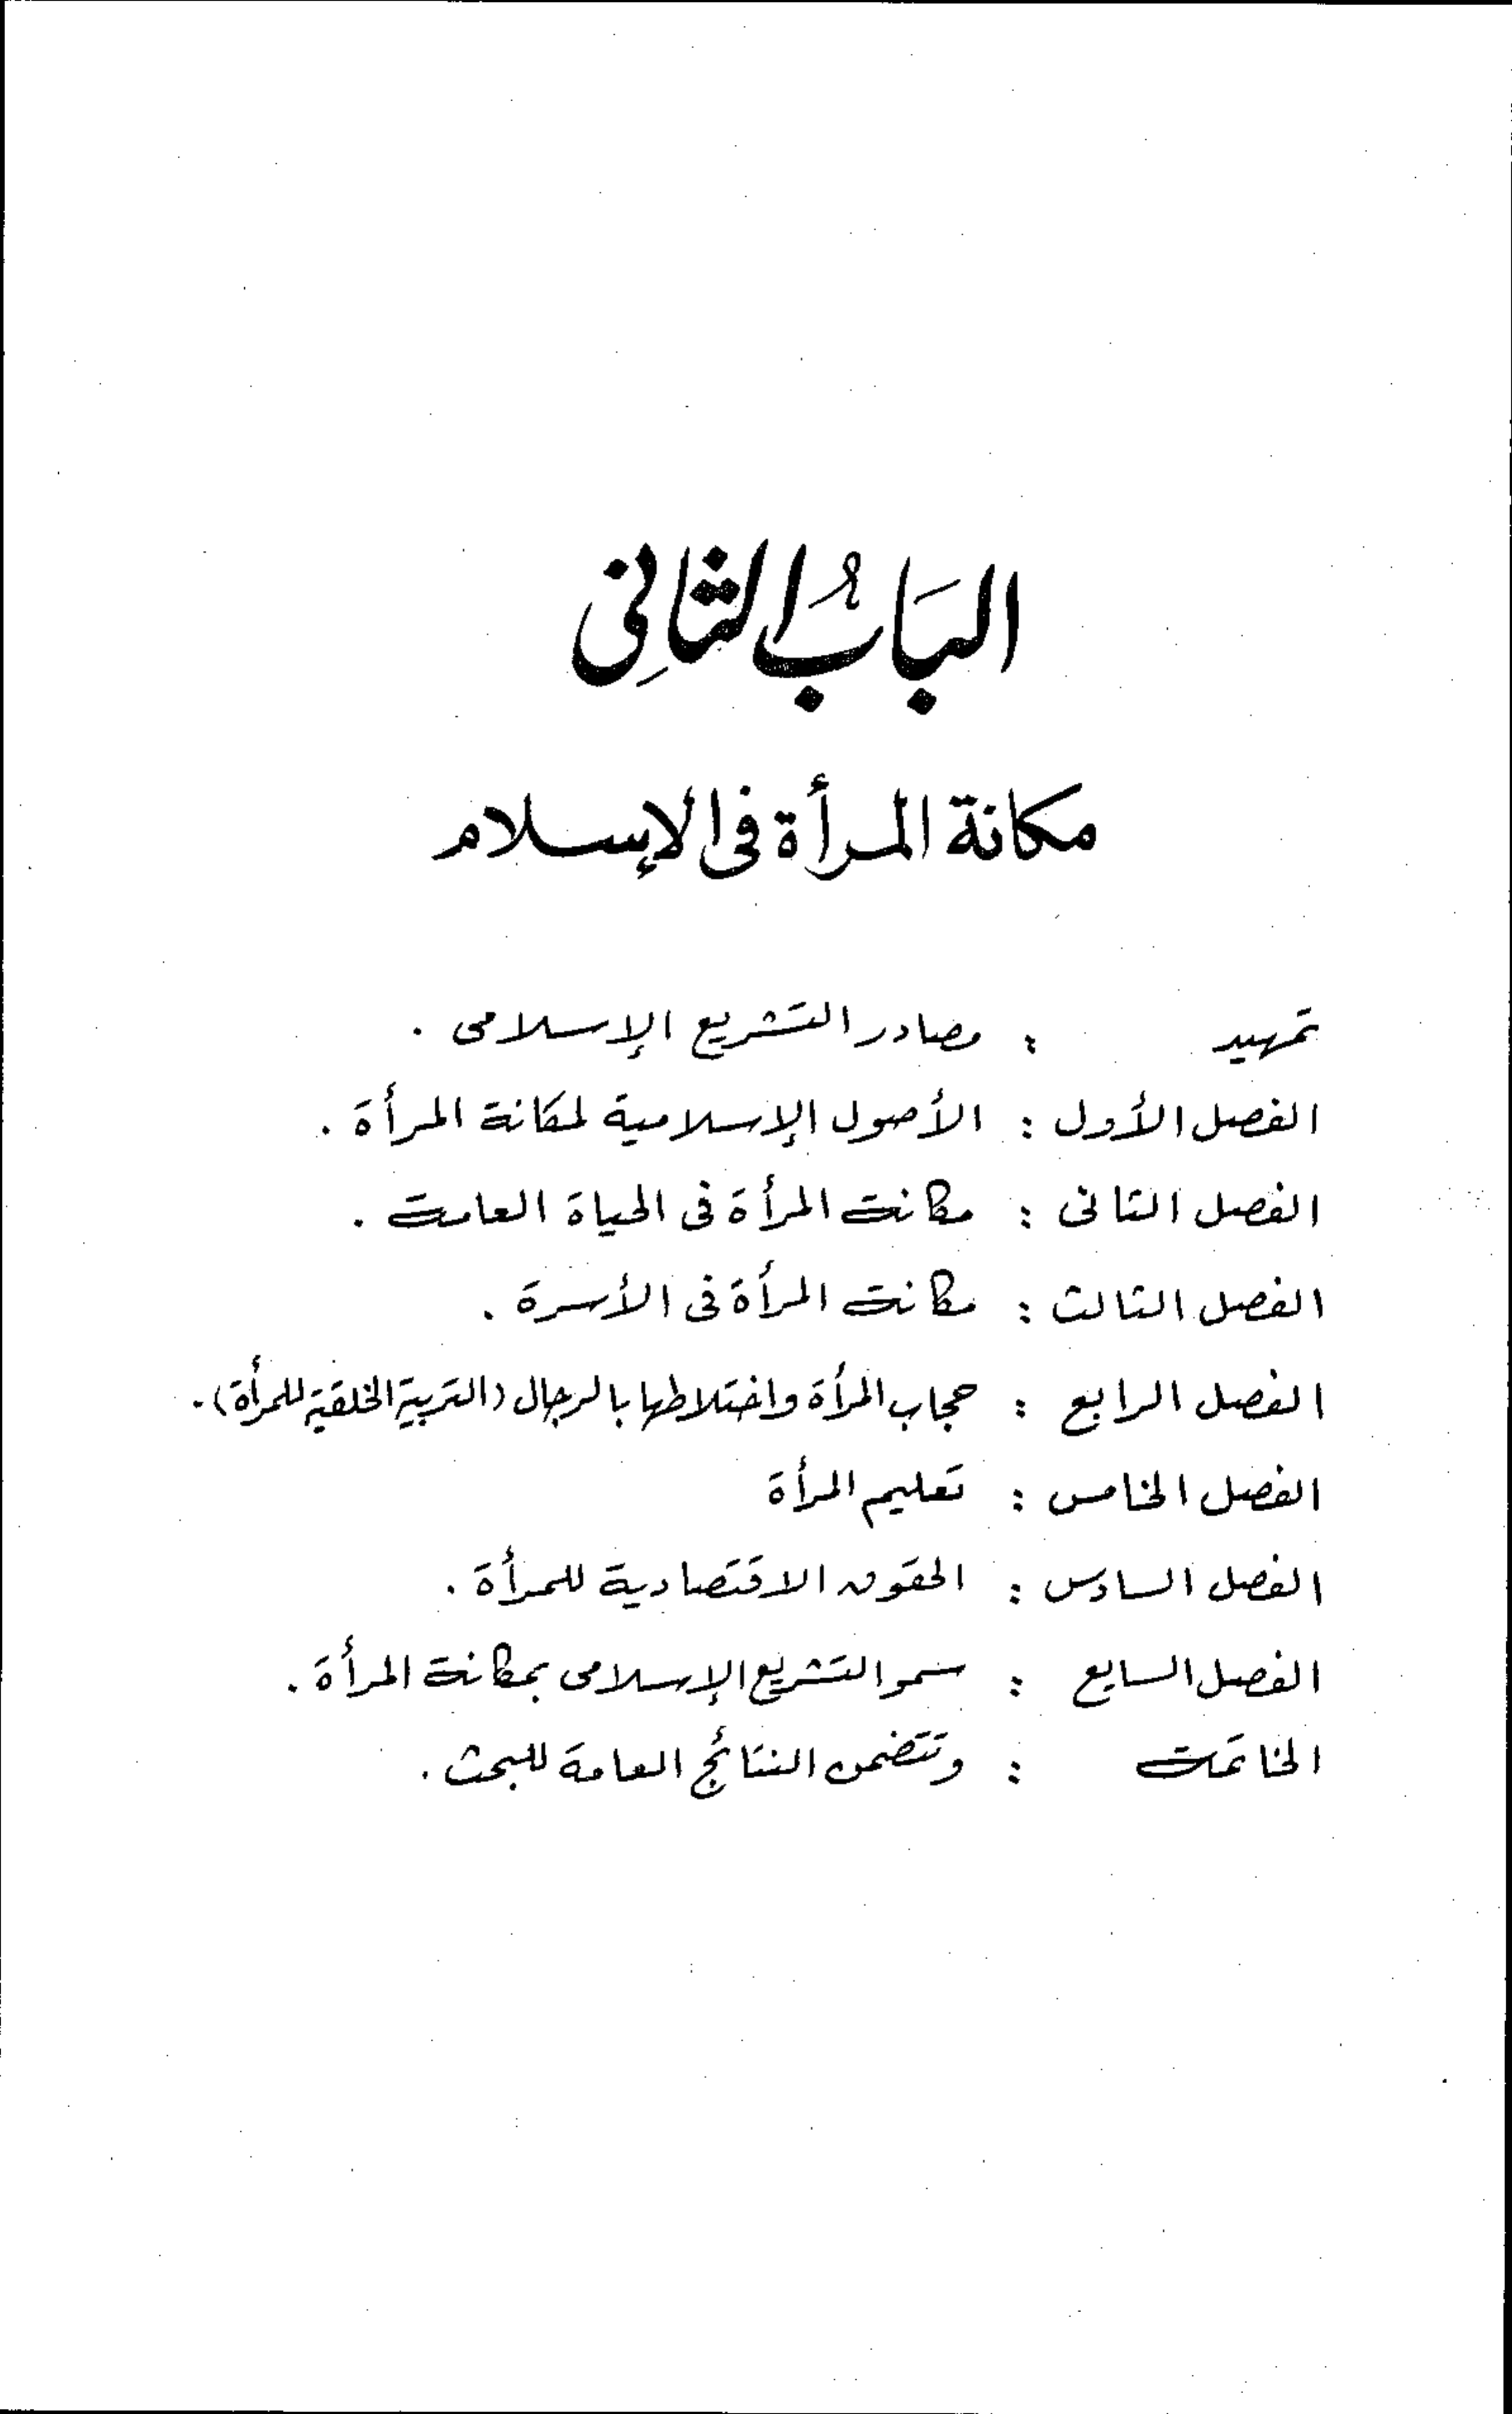 البَابُ الثانِى
مكانة المرأة فى الإسلام
تمهيد : مصادر التشريع الإسلامى .
الفصل الأول : الأصول الإسلامية لمكانة المرأة .
الفصل الثانى : مكانة المرأة فى الحياة العامة .
الفصل الثالث : مكانة المرأة فى الأسرة .
الفصل الرابع : حجاب المرأة واختلاطها بالرجال (التربية الخلقية للمرأة) .
الفصل الخامس : تعليم المرأة
الفصل السادس : الحقوق الاقتصادية للمرأة .
الفصل السابع : سمو التشريع الإسلامى بمكانة المرأة .
الخاتمة : وتتضمن النتائج العامة للبحث .